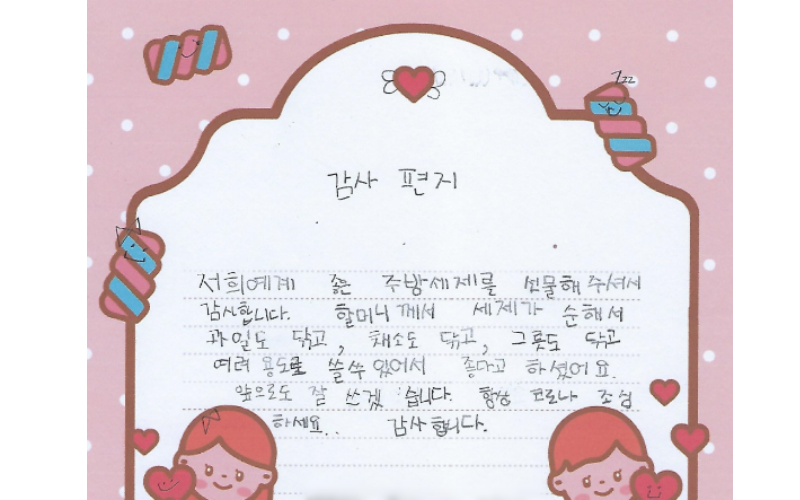 zzz
감사 편지
저희에게 좋은 주방세제를 선물해 주셔서
감사합니다. 할머니께서 세제가 순해서
과일도 닦고, 채소도 닦고, 그릇도 닦고
여러 용도로 쓸수 있어서 좋다고 하셨어요.
앞으로도 잘 쓰겠습니다. 항상 코로나 조심
하세요.. 감사합니다.